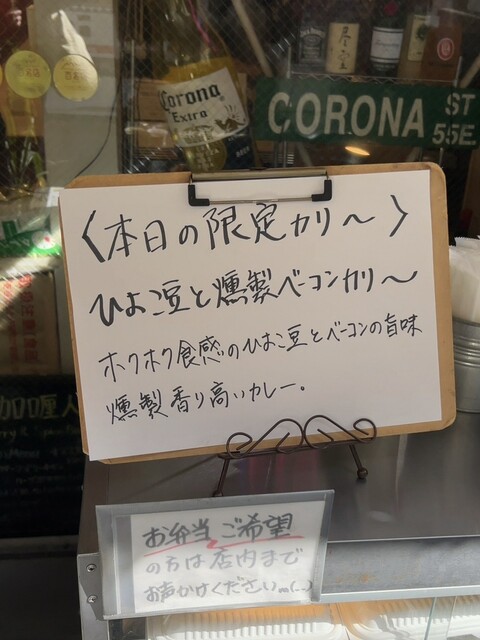 Corona
Extra
CORONA ST
55E
〈本日の限定カリ〜〉
ひよこ豆と燻製ベーコンカリ〜
ホクホク食感のひよこ豆とベーコンの旨味
燻製香り高いカレー。
お弁当ご希望
の方は店内まで
お声かけくださいm(__)m